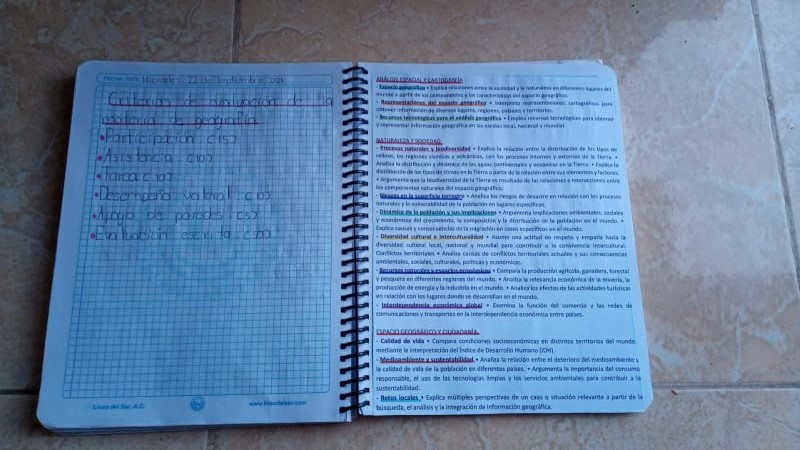 Miércoles 22 de Septiembre 2021
Criterios de evaluación de la
materia de geografía
• Participación (15)
• Asistencia (10)
• Tarea (10)
• Desempeño valoral (10)
• Apoyo de padres (5)
• Evaluación escrita (50)
Liceo del Sur, A.C.
www.liceodelsur.com
ANÁLISIS ESPACIAL Y CARTOGRAFÍA
- Espacio geográfico • Explica relaciones entre la sociedad y la naturaleza en diferentes lugares del
mundo a partir de los componentes y las características del espacio geográfico.
- Representaciones del espacio geográfico • Interpreta representaciones cartográficas para
obtener información de diversos lugares, regiones, paisajes y territorios.
- Recursos tecnológicos para el análisis geográfico • Emplea recursos tecnológicos para obtener
y representar información geográfica en las escalas local, nacional y mundial.
NATURALEZA Y SOCIEDAD.
- Procesos naturales y biodiversidad • Explica la relación entre la distribución de los tipos de
relieve, las regiones sísmicas y volcánicas, con los procesos internos y externos de la Tierra. •
Analiza la distribución y dinámica de las aguas continentales y oceánicas en la Tierra. • Explica la
distribución de los tipos de climas en la Tierra a partir de la relación entre sus elementos y factores.
• Argumenta que la biodiversidad de la Tierra es resultado de las relaciones e interacciones entre
los componentes naturales del espacio geográfico.
- Riesgos en la superficie terrestre • Analiza los riesgos de desastre en relación con los procesos
naturales y la vulnerabilidad de la población en lugares específicos.
- Dinámica de la población y sus implicaciones • Argumenta implicaciones ambientales, sociales
y económicas del crecimiento, la composición y la distribución de la población en el mundo. •
Explica causas y consecuencias de la migración en casos específicos en el mundo.
- Diversidad cultural e interculturalidad • Asume una actitud de respeto y empatía hacia la
diversidad cultural local, nacional y mundial para contribuir a la convivencia intercultural.
Conflictos territoriales • Analiza causas de conflictos territoriales actuales y sus consecuencias
ambientales, sociales, culturales, políticas y económicas.
- Recursos naturales y espacios económicos • Compara la producción agrícola, ganadera, forestal
y pesquera en diferentes regiones del mundo. • Analiza la relevancia económica de la minería, la
producción de energía y la industria en el mundo. • Analiza los efectos de las actividades turísticas
en relación con los lugares donde se desarrollan en el mundo.
- Interdependencia económica global • Examina la función del comercio y las redes de
comunicaciones y transportes en la interdependencia económica entre países.
ESPACIO GEOGRÁFICO Y CIUDADANÍA.
- Calidad de vida • Compara condiciones socioeconómicas en distintos territorios del mundo,
mediante la interpretación del Índice de Desarrollo Humano (IDH).
- Medioambiente y sustentabilidad • Analiza la relación entre el deterioro del medioambiente y
la calidad de vida de la población en diferentes países. • Argumenta la importancia del consumo
responsable, el uso de las tecnologías limpias y los servicios ambientales para contribuir a la
sustentabilidad.
- Retos locales • Explica múltiples perspectivas de un caso o situación relevante a partir de la
búsqueda, el análisis y la integración de información geográfica.